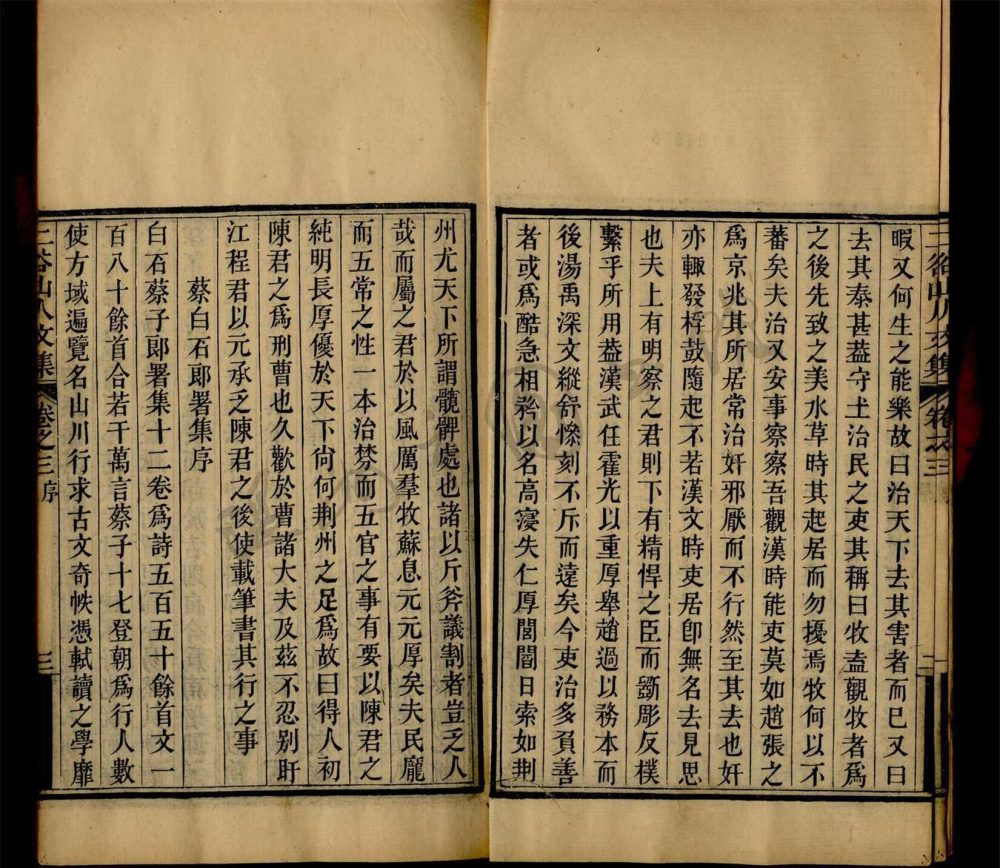 暇又何生之能樂故曰治天下去其害者而已又曰
去其泰甚葢守土治民之吏其稱曰牧盍觀牧者爲
之後先致之美水草時其起居而勿擾焉牧何以不
蕃矣夫治又安事察察吾觀漢時能吏莫如趙張之
爲京兆其所居常治奸邪厭而不行然至其去也奸
亦輙發桴鼓隨起不若漢文時吏居卽無名去見思
也夫上有明察之君則下有精悍之臣而斵彫反樸
繫乎所用葢漢武任霍光以重厚舉趙過以務本而
後湯禹深文縱舒慘刻不斥而遠矣今吏治多負善
者或爲酷急相矜以名高寖失仁厚誾誾日索如荆
二谷山人文集
卷之三
序
二
州尤天下所謂髖髀處也諸以斤斧議割者豈乏人
哉而屬之君於以風厲羣牧蘇息元元厚矣夫民龐
而五常之性一本治棼而五官之事有要以陳君之
純明長厚優於天下尙何荆州之足爲故曰得人初
陳君之爲刑曹也久歡於曹諸大夫及茲不忍别盱
江程君以元承乏陳君之後使載筆書其行之事
蔡白石郎署集序
白石蔡子郎署集十二卷爲詩五百五十餘首文一
百八十餘首合若干萬言蔡子十七登朝爲行人數
使方域遍覽名山川行求古文奇帙憑軾讀之學靡
二谷山人文集
卷之三
序
三